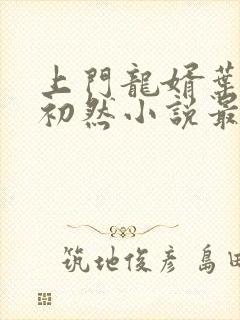 上門龍婿葉
初然小説最
筑地俊彦 島田